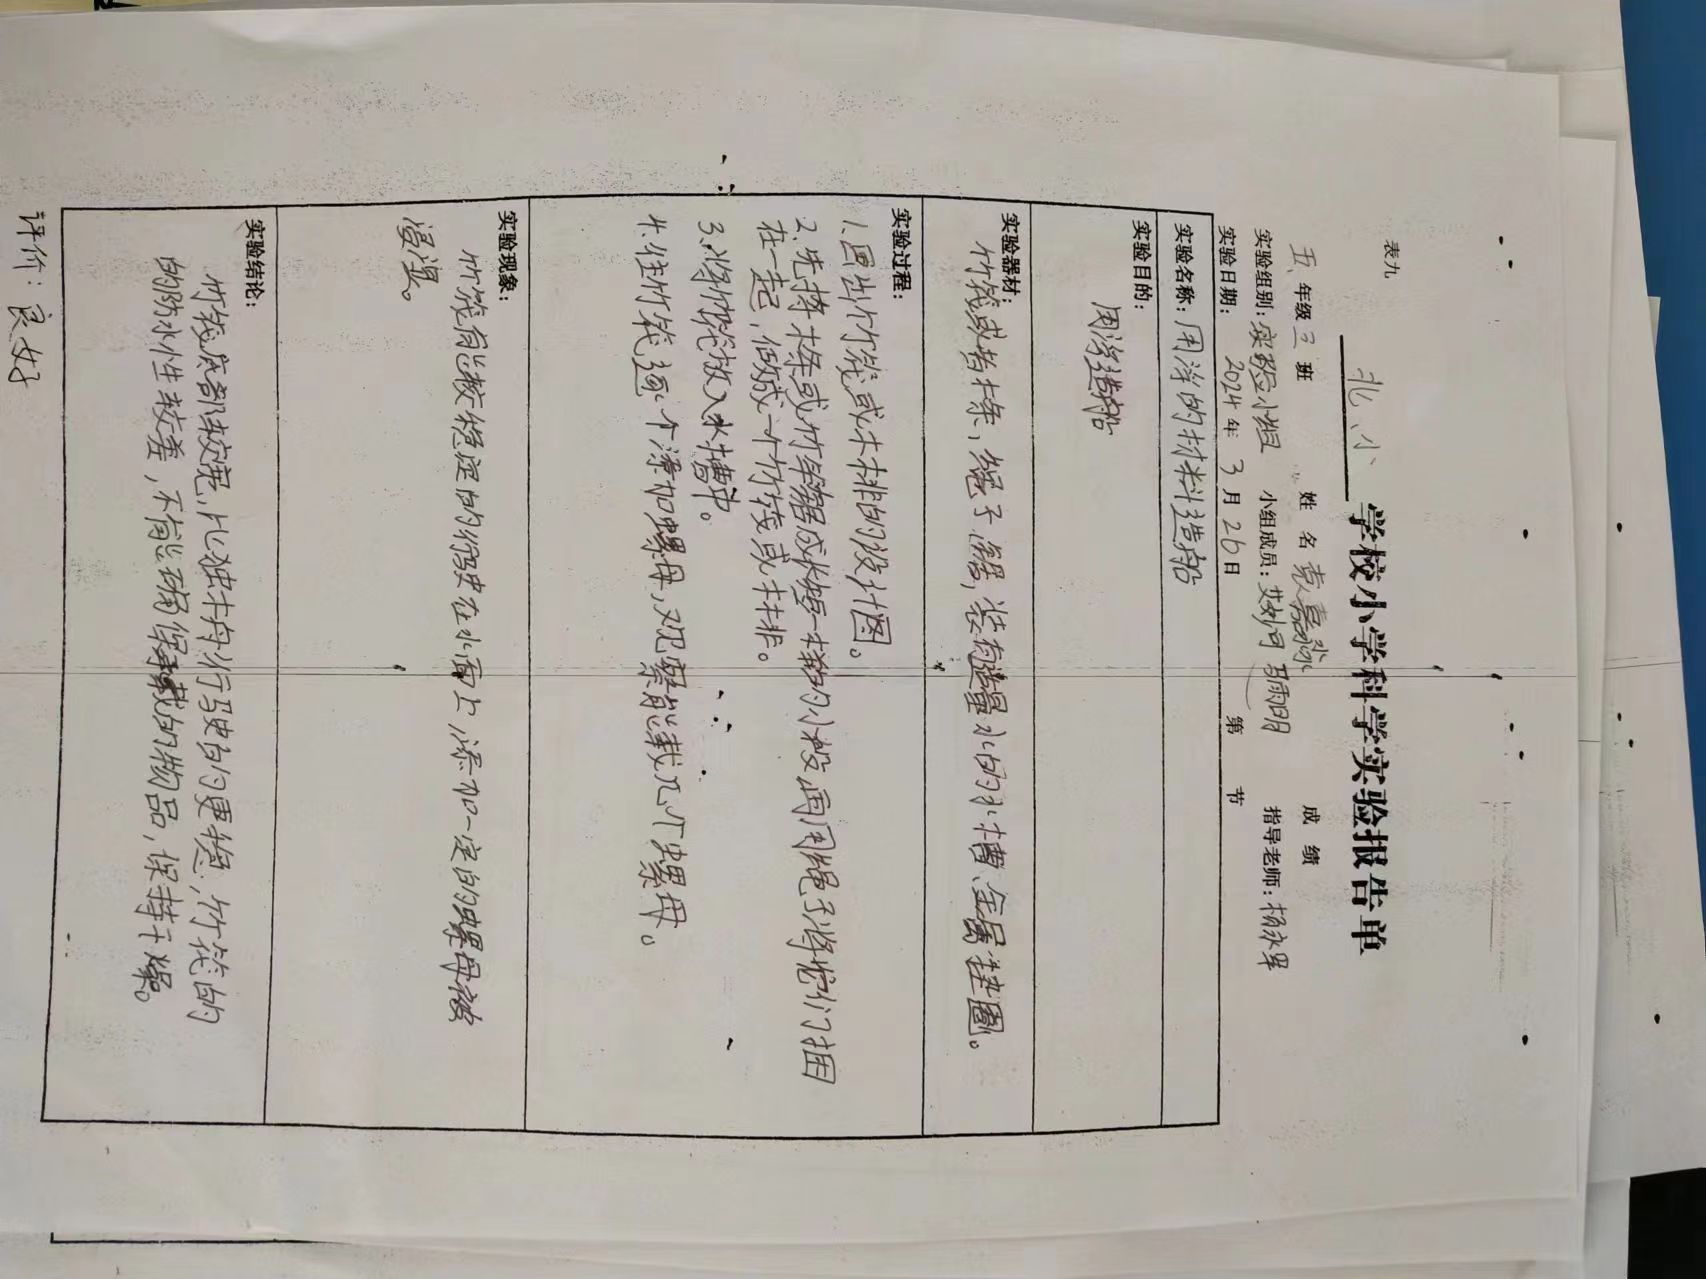 表九
北小 学校小学科学实验报告单
五 年级 三 班 姓 名 袁嘉淼 成 绩
实验组别：实验小组 小组成员： 指导老师：杨永军
实验日期： 2024 年 3 月 26 日 第 节
实验名称：用浮的材料造船
实验目的：
用浮造船
实验器材：
竹筏或者木条，绳子，锯，装有适量水的水槽、金属垫圈。
实验过程：
1.画出竹筏或木排的设计图。
2.先将木条或竹竿锯成长短一样的小段 再用绳子将它们捆
在一起，做成一个竹筏或木排。
3.将竹筏放入水槽中。
4.往竹筏逐个添加螺母，观察能载几个螺母。
实验现象：
竹筏能较稳定的行驶在水面上 添加一定的螺母被
浸湿。
实验结论：
竹筏底部较宽，比独木舟行驶的更稳，竹筏的
的防水性较差，不能确保 载的物品，保持干燥。
评价：良好